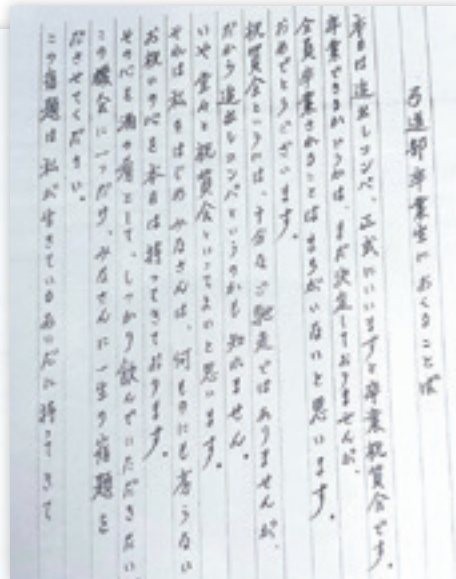 弓道部卒業生におくることば
本日は追出しコンペ、正式にいいますと卒業祝賀会です。
卒業できるかどうかは、まだ決定しておりませんが、
全員卒業されることはまちがいないと思います。
おめでとうございます。
祝賀会というのは、十分なご馳走ではありませんが、
だから追出しコンペというのかも知れません。
いや堂々と祝賀会といってよいと思います。
それは私をはじめみなさんは、何ものにも劣らない
お祝いの心を本日は持ってきております。
その心を酒の肴として、しっかり飲んでいただきたい
この機会に一つだけ、みなさんに一生の宿題を
ださせてください。
この宿題は私が生きているあいだに持ってきて